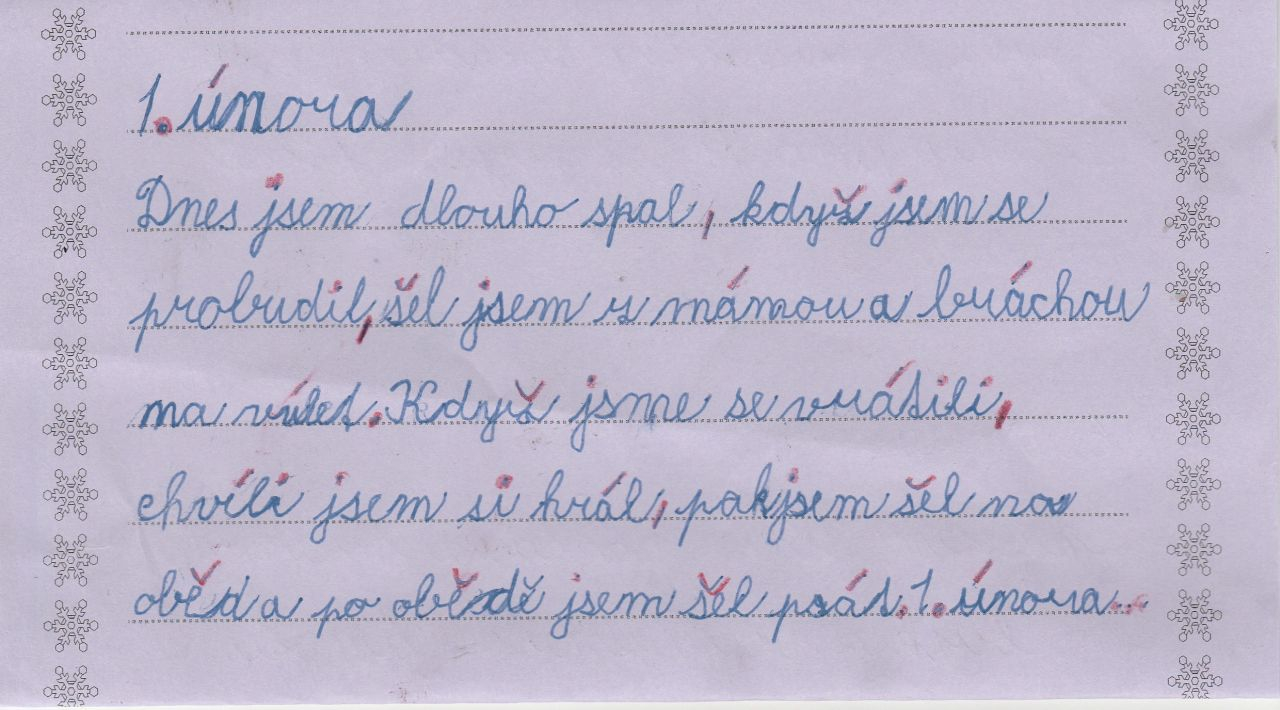 1. února
Dnes jsem dlouho spal, když jsem se
probudil, šel jsem s mámou a bráchou
na výlet. Když jsme se vrátili,
chvíli jsem si hrál, pak jsem šel na
oběd a po obědě jsem šel psát. 1. února...